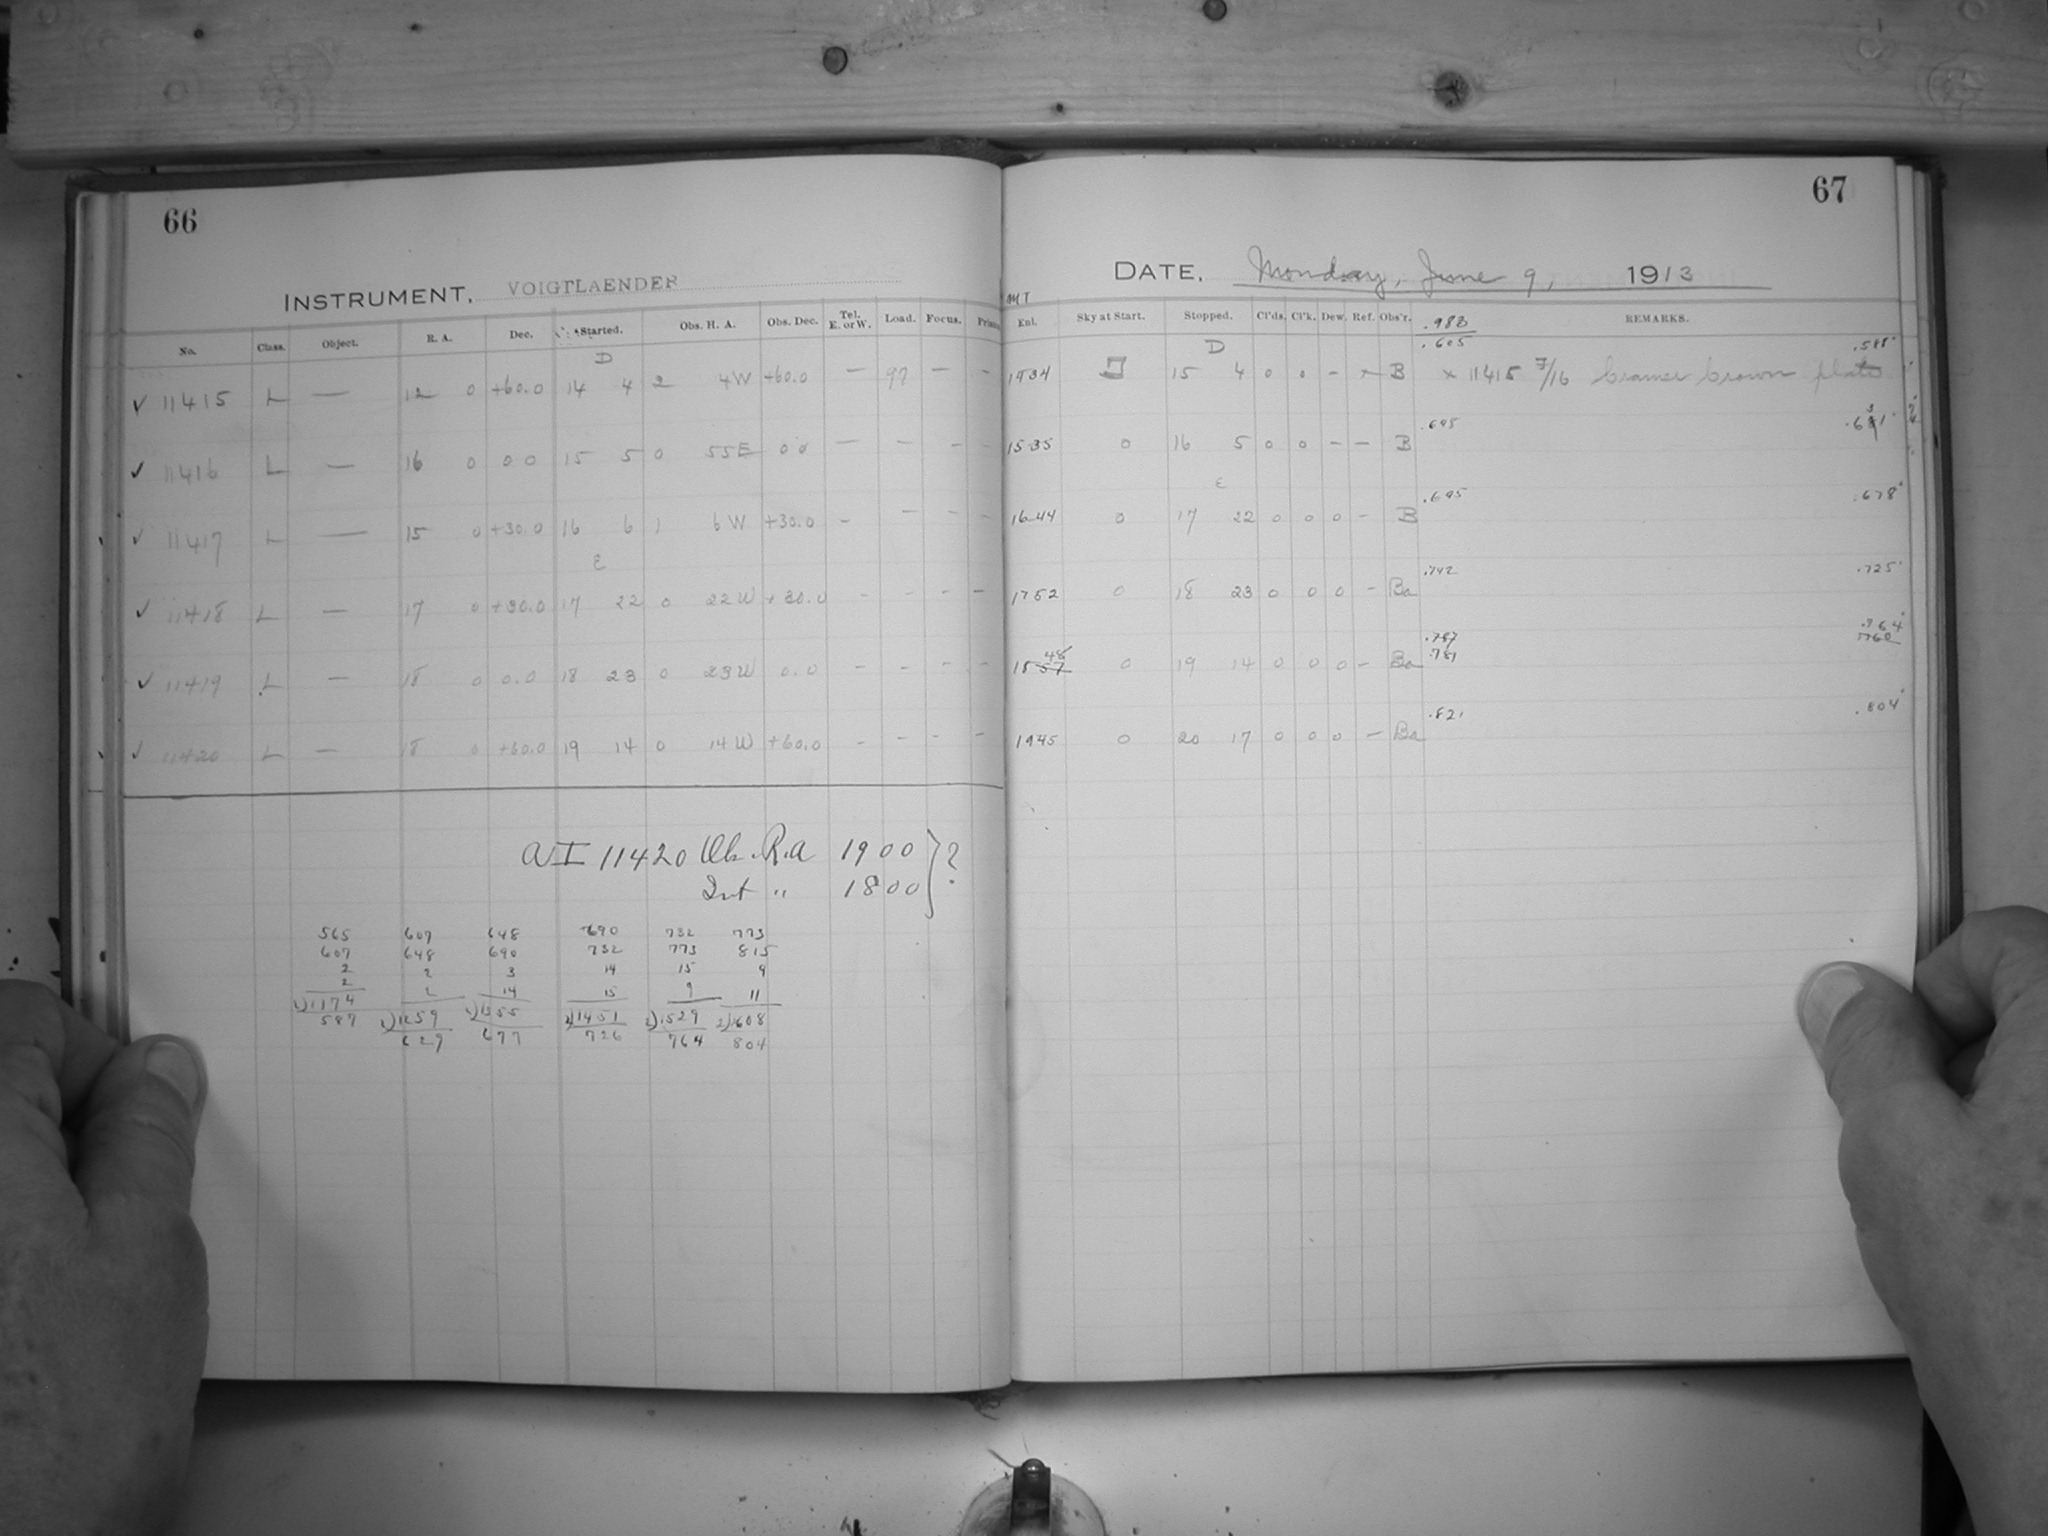 66
INSTRUMENT, VOIGTLAENDER
No. Class. Object. R. A. Dec. Started. Obs. H. A. Obs. Dec. Tel. E. or W. Load. Focus.
D
✓ 11415 L — 12 0 +60.0 14 4 2 4W +60.0 — 97 — -
✓ 11416 L — 16 0 0 0 15 5 0 55E 0 0 — - - -
✓ 11417 L — 15 0 +30.0 16 6 1 6W +30.0 - - - -
E
✓ 11418 L — 17 0 +30.0 17 22 0 22W +30.0 - - - -
✓ 11419 L — 18 0 0.0 18 23 0 23W 0.0 - - - -
✓ 11420 L — 18 0 +60.0 19 14 0 14W +60.0 - - - -
AI 11420 Ob. R.A 1900 } ?
Int " 1800
565 607 648 690 732 773
607 648 690 732 773 815
2 2 3 14 15 9
2 2 14 15 9 11
2)1174 2)1259 2)1355 2)1451 2)1529 2)1608
587 629 677 726 764 804
67
DATE, Monday, June 9, 1913
Ent. Sky at Start. Stopped. Cl'ds. Cl'k. Dew. Ref. Obs'r. REMARKS.
.983
D .605
1434 15 4 0 0 - - B × 11415 7/16 Cramer Crown plate
.695
1535 0 16 5 0 0 - - B
E .695 .678
1644 0 17 22 0 0 0 - B
.742 .725
1752 0 18 23 0 0 0 - Ba
.787 .764
48 .781 .760
18 57 0 19 14 0 0 0 - Ba
.821 .804
1945 0 20 17 0 0 0 - Ba